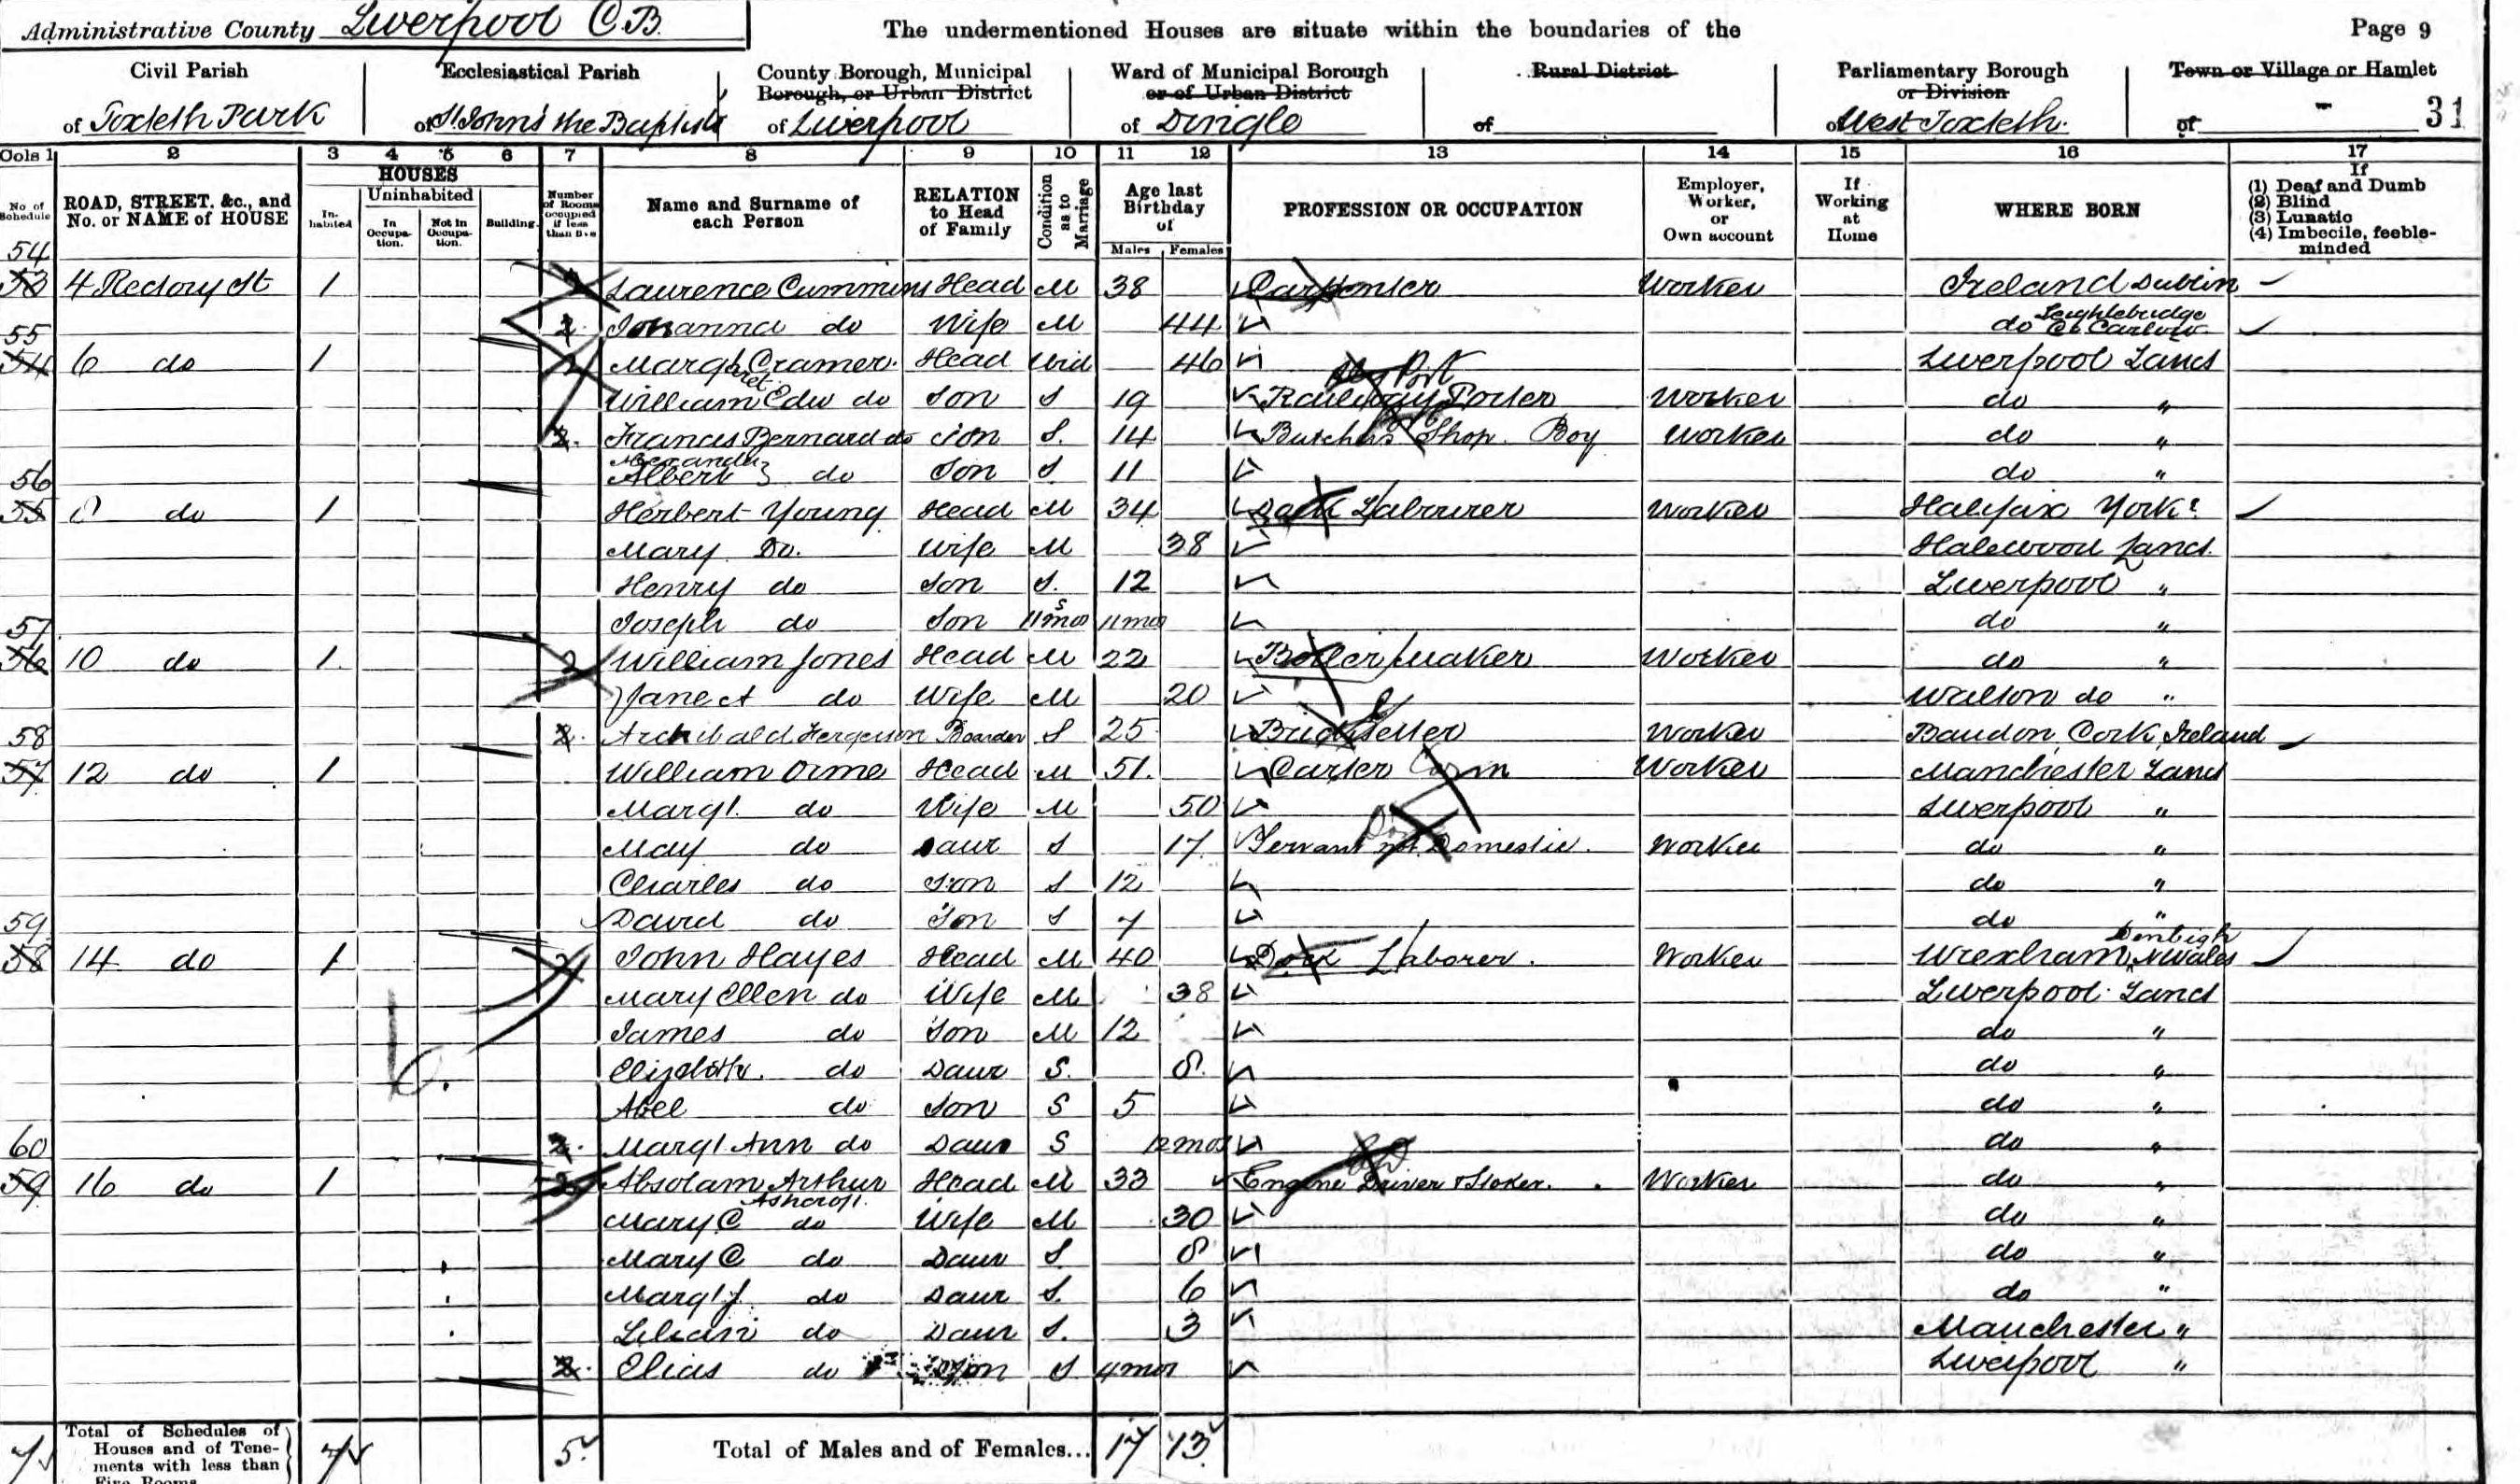 Administrative County Liverpool C.B. The undermentioned Houses are situate within the boundaries of the Page 9
Civil Parish Ecclesiastical Parish County Borough, Municipal Borough, or Urban District Ward of Municipal Borough or of Urban District Rural District Parliamentary Borough or Division Town or Village or Hamlet
of Toxteth Park of St Johns the Baptist of Liverpool of Dingle of of West Toxteth. of - 31
Cols 1 2 3 4 5 6 7 8 9 10 11 12 13 14 15 16 17
No. of Schedule ROAD, STREET, &c., and No. or NAME of HOUSE HOUSES Inhabited Uninhabited In Occupation. Not in Occupation. Building Number of Rooms occupied if less than five Name and Surname of each Person RELATION to Head of Family Condition as to Marriage Age last Birthday of Males Females PROFESSION OR OCCUPATION Employer, Worker, or Own account If Working at Home WHERE BORN If (1) Deaf and Dumb (2) Blind (3) Lunatic (4) Imbecile, feeble-minded
54
53 4 Rectory St 1 2 Laurence Cummins Head M 38 Carpenter Worker Ireland Dublin
2 Johanna do Wife M 44 do Leighlebridge Co Carlow
55
54 6 do 1 2 Margt Cramer Head Wid 46 Liverpool Lancs
William Edw do Son S 19 Railway Porter Worker do "
2. Francis Bernard do Son S. 14 Butchers Shop Boy Worker do "
Alexander Albert do Son S 11 do "
56
55 8 do 1 Herbert Young Head M 34 Dock Labourer Worker Halifax Yorks
Mary Do. Wife M 38 Halewood Lancs.
Henry do Son S. 12 Liverpool "
Joseph do Son S 11mos 11mos do "
57
56 10 do 1. 2 William Jones Head M 22 Boiler Maker Worker do "
Jane A do Wife M 20 Walton do "
2. Archibald Fergerson Boarder S 25 Brick Setter Worker Bandon, Cork, Ireland
58
57 12 do 1 William Orme Head M 51. Carter Worker Manchester Lancs
Margt. do Wife M 50 Liverpool "
May do Daur S 17 Servant Domestic. Worker do "
Charles do Son S 12 do "
David do Son S 7 do "
59
58 14 do 1 2 John Hayes Head M 40 Dock Laborer. Worker Wrexham, Denbigh N Wales
Mary Ellen do Wife M 38 Liverpool Lancs
James do Son M 12 do "
Elizabeth. do Daur S. 8. do "
Abel do Son S 5 do "
60 2. Margt Ann do Daur S 12mos do "
59 16 do 1 2 Absolam Arthur Ashcroft. Head M 33 Engine Driver & Stoker. Worker do "
Mary C do Wife M 30 do "
Mary C do Daur S. 8 do "
Margt J. do Daur S. 6 do "
Lilian do Daur S. 3 Manchester "
2. Elias do Son S 4mos Liverpool "
7 Total of Schedules of Houses and of Tenements with less than 7 5 Total of Males and of Females... 17 13